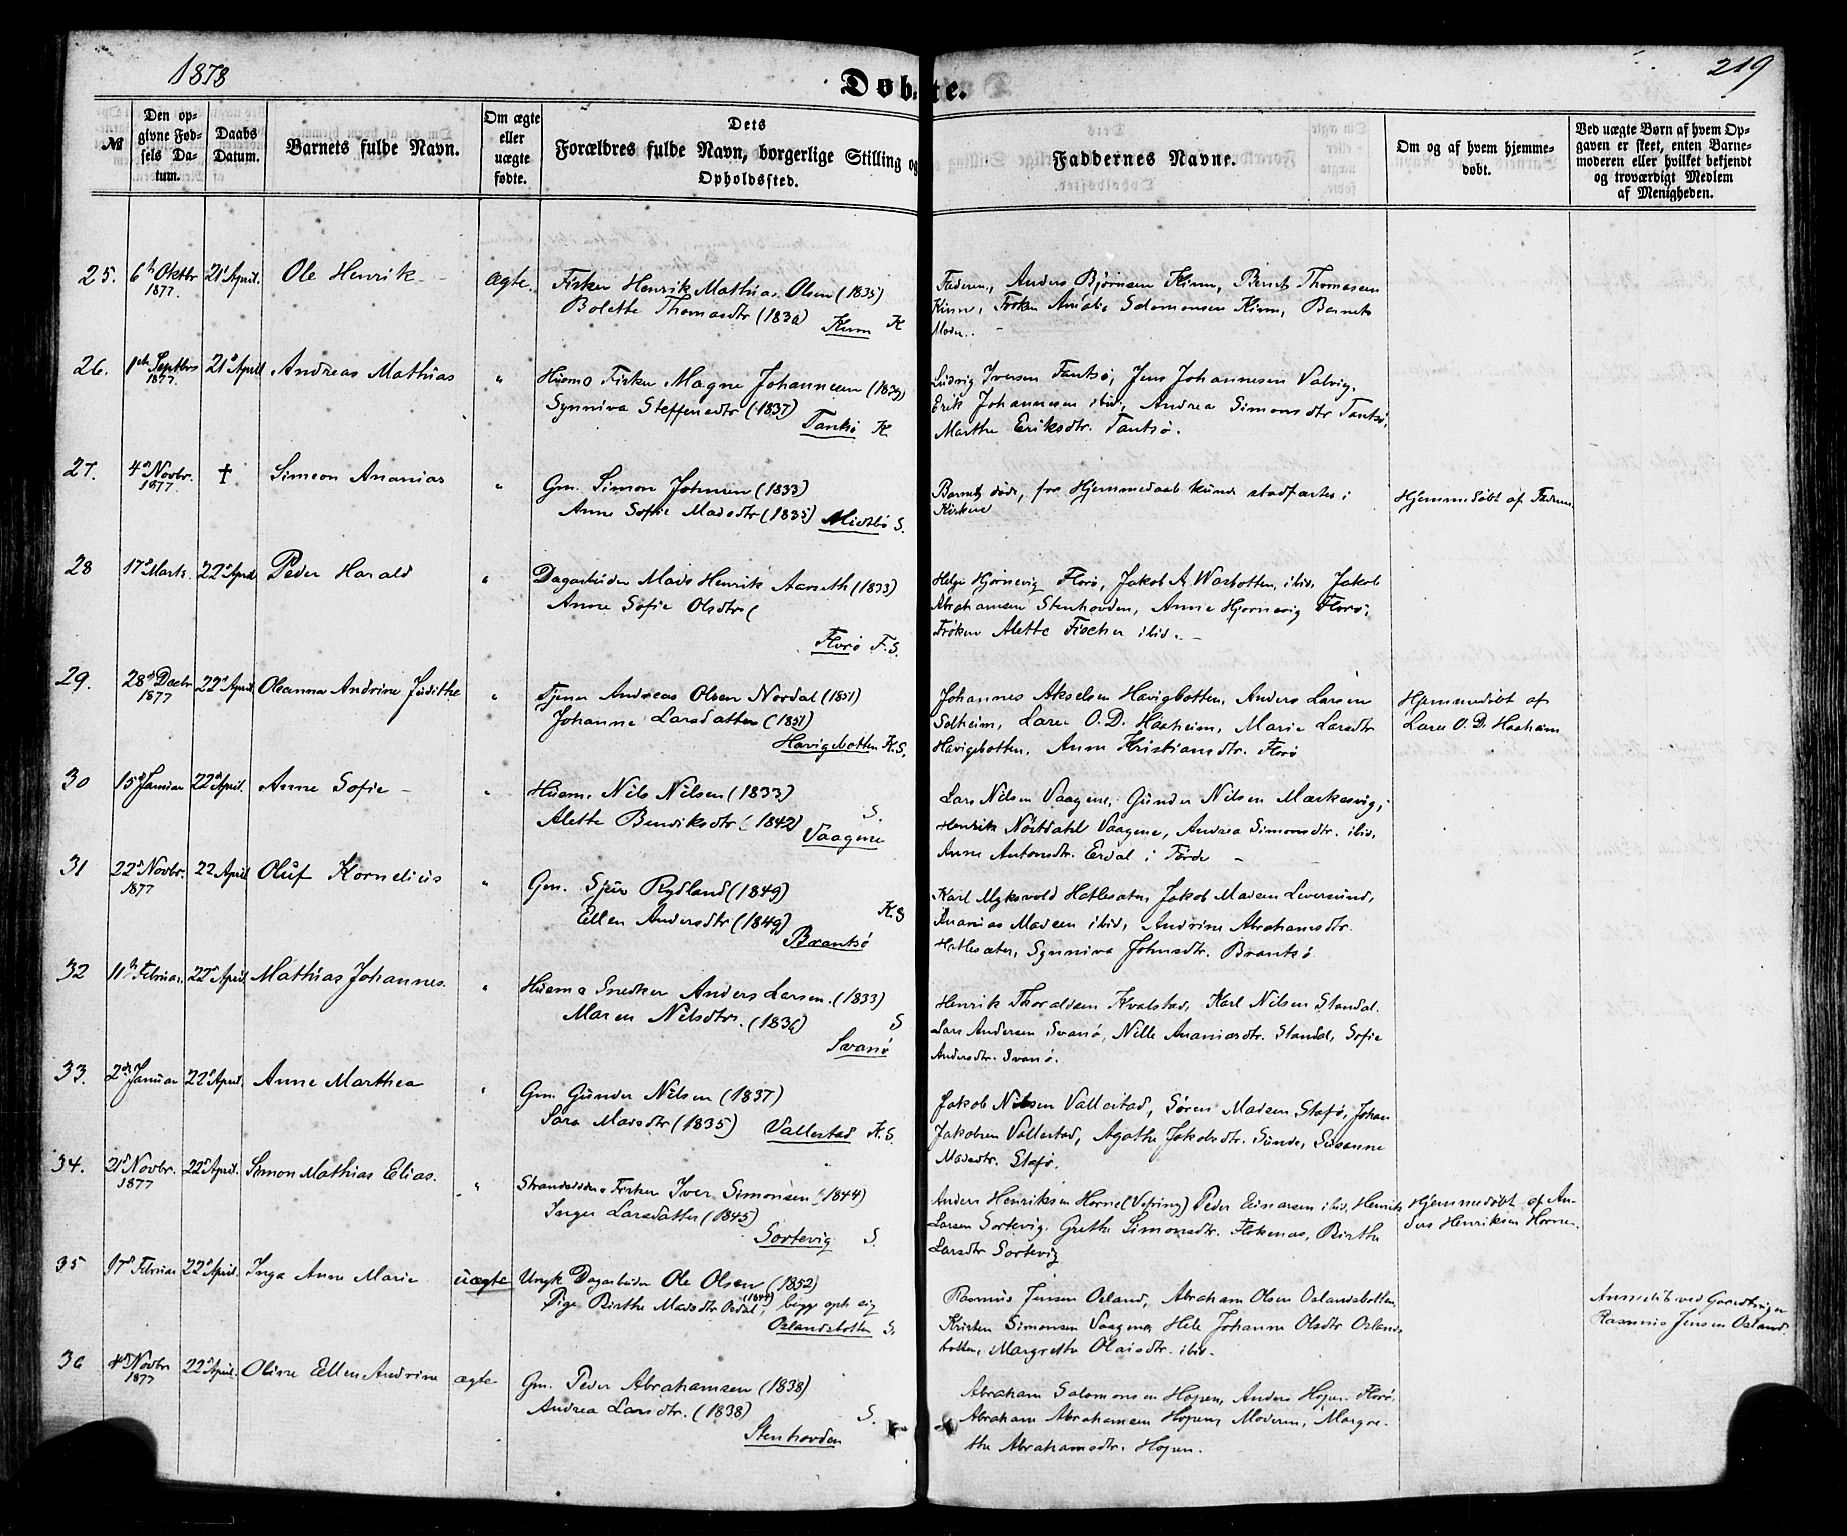 1878
Døbte.
219
№
Den opgivne Fødsels Datum.
Daabs Datum.
Barnets fulde Navn.
Om ægte eller uægte fødte.
Dets Forældres fulde Navn, borgerlige Stilling og Opholdssted.
Faddernes Navne.
Om og af hvem hjemmedøbt.
Ved uægte Børn af hvem Opgaven er skeet, enten Barnemoderen eller hvilket bekjendt og troværdigt Medlem af Menigheden.
25. 6th Oktbr 1877. 21d April. Ole Henrik - ægte. Fisker Henrik Mathias Olsen (1835)
Bolette Thomasdtr (1830) Kinn K
Faderen, Anders Bjørnsen Kinn, Bernt Thomasen
Kinn, Frøken Amalie Salomonsen Kinn, Barnets
Moder. -
26. 1ste Septbr 1877. 21d April Andreas Mathias " Husmd Fisker Magne Johannesen (1839)
Synniva Steffensdtr (1837)
Tansø K.
Ludvig Iversen Tansø, Jens Johannesen Valvig,
Erik Johannesen ibid, Andrea Simonsdtr Tansø,
Marthe Eriksdtr. Tansø.
27. 4d Novbr. 1877. † Simeon Ananias " Gm. Simon Johnsen (1833)
Anne Sofie Madsdtr (1835) Midtbø S.
Barnet døde, før Hjemmedaab kunde stadfæstes i
Kirken
Hjemmedøbt af Faderen
28 17d Marts. 22d April Peder Harald " Dagarbeider Mads Henrik Aarseth (1833)
Anne Sofie Olsdtr (
Florø F.S.
Helge Hjørnevig Florø, Jakob A. Wasbotten, ibid, Jakob
Abrahamsen Stenhovden, Anne Hjørnevig Florø,
Frøken Alette Fischer ibid. -
29. 28d Decbr 1877 22d April Oleanna Andrine Judithe " Tjener Andreas Olsen Nordal (1851)
Johanne Larsdatter (1851)
Havigbotten K.S.
Johannes Akselsen Havigbotten, Anders Larsen
Solheim, Lars O. D. Haaheim, Marie Larsdtr
Havigbotten, Anne Kristiansdtr. Florø
Hjemmedøbt af
Lars O. D. Haaheim
30 15d Januar 22d April. Anne Sofie - " Husm. Nils Nilsen (1833)
Alette Bendiksdtr (1842) S.
Vaagene
Lars Nilsen Vaagene, Gunder Nilsen Markesvig,
Henrik Nøstdahl Vaagene, Andrea Simonsdtr. ibid,
Anne Antonsdtr. Erdal i Førde -
31 22d Novbr. 1877 22 April Oluf Kornelius " Gm. Sjur Rydland (1849)
Ellen Andersdtr (1849) K.S
Brantsø
Karl Myksvold Hatlesæter, Jakob Madsen Leversund,
Ananias Madsen ibid, Andrine Abrahamsdtr.
Hatlesæter, Synniva Johnsdtr. Brantsø
32 11th Februar. 22d April. Mathias Johannes. " Husmd Snedker Anders Larsen. (1833)
Maren Nilsdtr. (1836) S
Svanø
Henrik Thoraldsen Kvalstad, Karl Nilsen Standal.
Lars Andersen Svanø, Nille Ananiasdtr. Standal, Sofie
Andersdtr. Svanø.
33. 2den Januar 22d April. Anne Marthea " Gm. Gunder Nilsen (1837)
Sara Madsdtr (1835) Vallestad K.S.
Jakob Nilsen Vallestad, Søren Madsen Stafø, Johan
Jakobsen Vallestad, Agathe Jakobsdtr. Sunde, Susanne
Madsdtr. Stafø.
34. 21d Novbr. 1877 22d April. Simon Mathias Elias. " Strandsidder Fisker Iver Simonsen (1844)
Inger Larsdatter (1845)
Sortevig S.
Anders Henriksen Horne (Vefring) Peder Einarsen ibid, Henrik
Larsen Sortevig. Grethe Simonsdtr. Flokenæs, Birthe
Larsdtr Sortevig
Hjemmedøbt af An-
ders Henriksen Horne.
35 17d Februar 22d April. Inga Anne Marie uægte Ungk. Dagarbeider Ole Olsen (1852)
Pige Birthe Madsdtr Osdal (1844), begge oph. sig
Oslandsbotten S.
Rasmus Jensen Osland, Abraham Olsen Oslandsbotten,
Kristen Simonsen Vaagene, Hele Johanne Olsdtr Oslands
botten, Margrethe Olaisdtr. ibid.
Anmeldt ved Gaardbruger
Rasmus Jensen Osland.
36 4d Novbr 1877 22d April. Oline Ellen Andrine ægte Gm. Peder Abrahamsen (1838)
Andrea Larsdtr. (1838) S.
Stenhovden
Abraham Salomonsen Hopen, Anders Hopen Florø.
Abraham Abrahamsen Hopen, Moderen, Margre-
the Abrahamsdtr. Hopen.